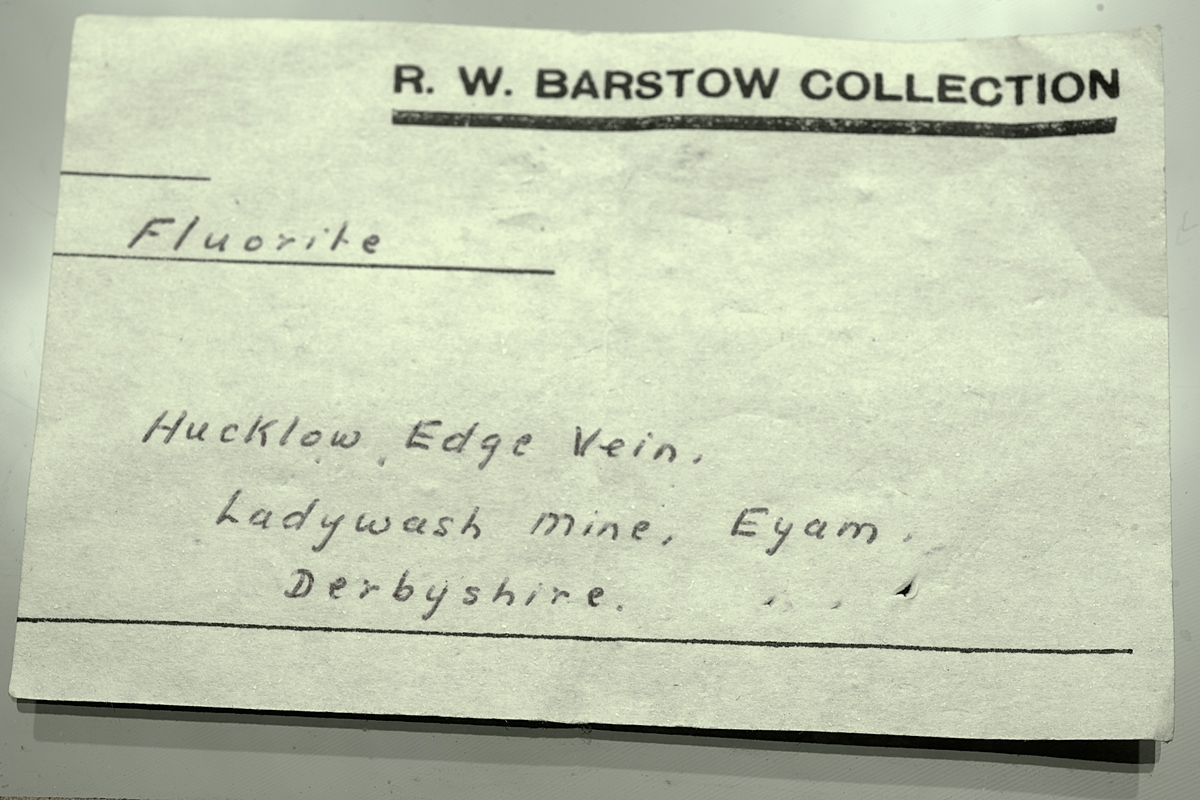 R. W. BARSTOW COLLECTION
Fluorite
Hucklow Edge Vein.
Ladywash mine, Eyam.
Derbyshire.